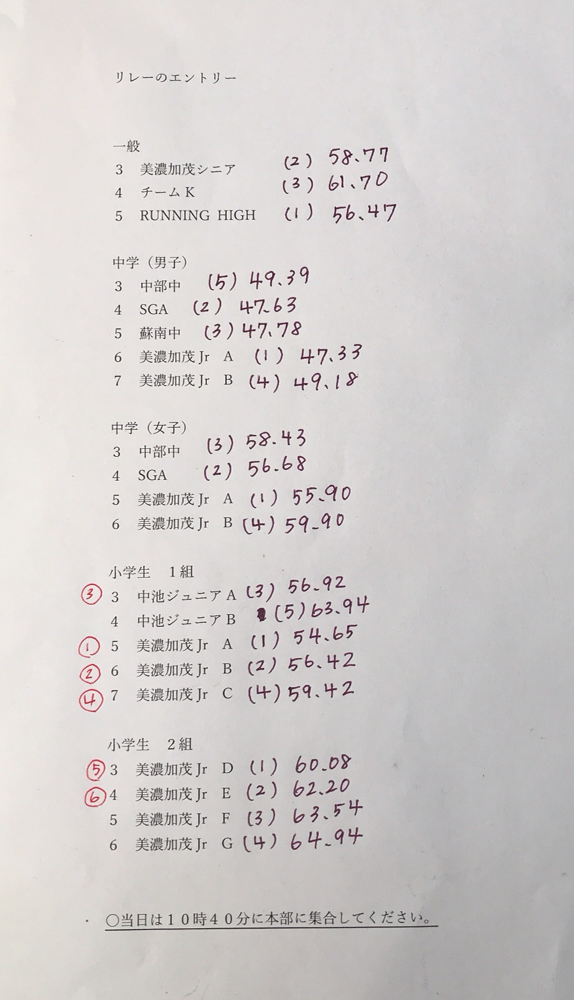 リレーのエントリー
一般
3 美濃加茂シニア (2) 58.77
4 チームK (3) 61.70
5 RUNNING HIGH (1) 56.47
中学（男子）
3 中部中 (5) 49.39
4 SGA (2) 47.63
5 蘇南中 (3) 47.78
6 美濃加茂Jr A (1) 47.33
7 美濃加茂Jr B (4) 49.18
中学（女子）
3 中部中 (3) 58.43
4 SGA (2) 56.68
5 美濃加茂Jr A (1) 55.90
6 美濃加茂Jr B (4) 59.90
小学生 1組
③ 3 中池ジュニアA (3) 56.92
4 中池ジュニアB (5) 63.94
① 5 美濃加茂Jr A (1) 54.65
② 6 美濃加茂Jr B (2) 56.42
④ 7 美濃加茂Jr C (4) 59.42
小学生 2組
⑤ 3 美濃加茂Jr D (1) 60.08
⑥ 4 美濃加茂Jr E (2) 62.20
5 美濃加茂Jr F (3) 63.54
6 美濃加茂Jr G (4) 64.94
・ ○当日は１０時４０分に本部に集合してください。